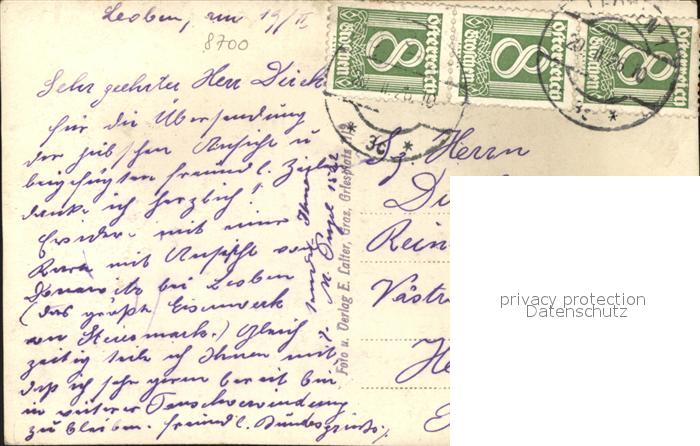 Leoben, am 19/II
8700
Sehr geehrter Herr Dirck
für die Übersendung
der hübschen Ansicht u
beigefügten freundl. Zeilen
danke ich herzlich!
Erwidere mit einer
mit Ansicht von
Donawitz bei Leoben
(das größte Eisenwerk
von Steiermark.) Gleich
zeitig teile ich Ihnen mit,
daß ich sehr gerne bereit bin
in weiterer Tauschverbindung
zu bleiben. freundl. Bundesgruß,
Foto u. Verlag E. Laiter, Graz, Griesplatz
8 Österreich Groschen
8 Österreich Groschen
8 Österreich
* 3c *
3c *
Sz Herrn
Di
Rein
Västra
He
privacy protection
Datenschutz